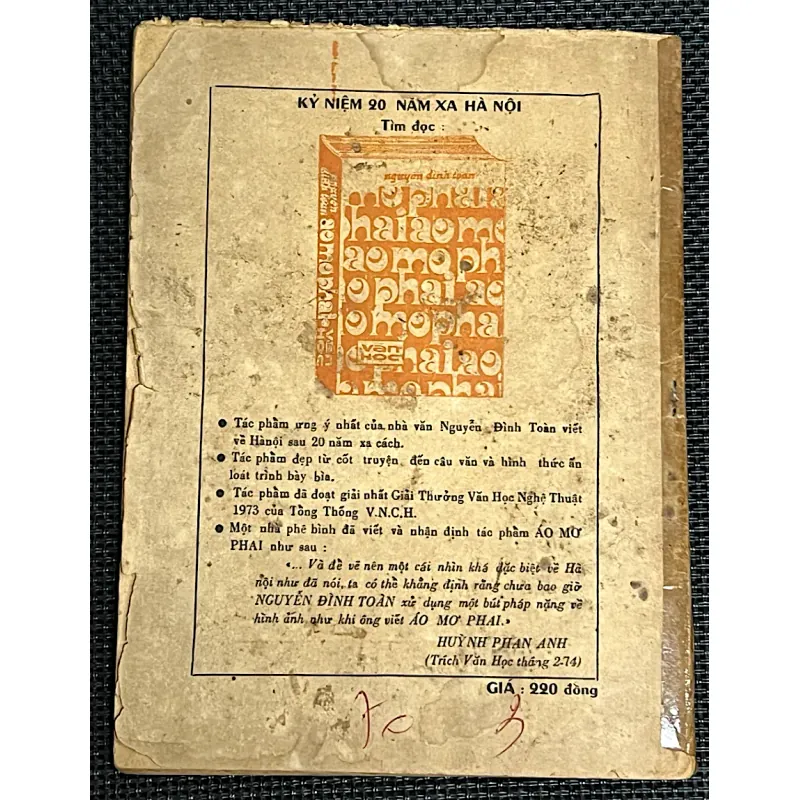 KỶ NIỆM 20 NĂM XA HÀ NỘI
Tìm đọc :
nguyễn đình toàn
mơ phai a
hai ao mơ
ao mơ ph
ao phai
ơ mơ pha
văn học hai ao
mơ phai
nguyễn đình toàn ao mơ phai VĂN HỌC
● Tác phẩm ưng ý nhất của nhà văn Nguyễn Đình Toàn viết
về Hànội sau 20 năm xa cách.
● Tác phẩm đẹp từ cốt truyện đến câu văn và hình thức ấn
loát trình bày bìa.
● Tác phẩm đã đoạt giải nhất Giải Thưởng Văn Học Nghệ Thuật
1973 của Tổng Thống V.N.C.H.
● Một nhà phê bình đã viết và nhận định tác phẩm ÁO MƠ
PHAI như sau :
«... Và để vẽ nên một cái nhìn khá đặc biệt về Hà
nội như đã nói, ta có thể khẳng định rằng chưa bao giờ
NGUYỄN ĐÌNH TOÀN xử dụng một bút pháp nặng về
hình ảnh như khi ông viết ÁO MƠ PHAI.»
HUỲNH PHAN ANH
(Trích Văn Học tháng 2-74)
GIÁ : 220 đồng